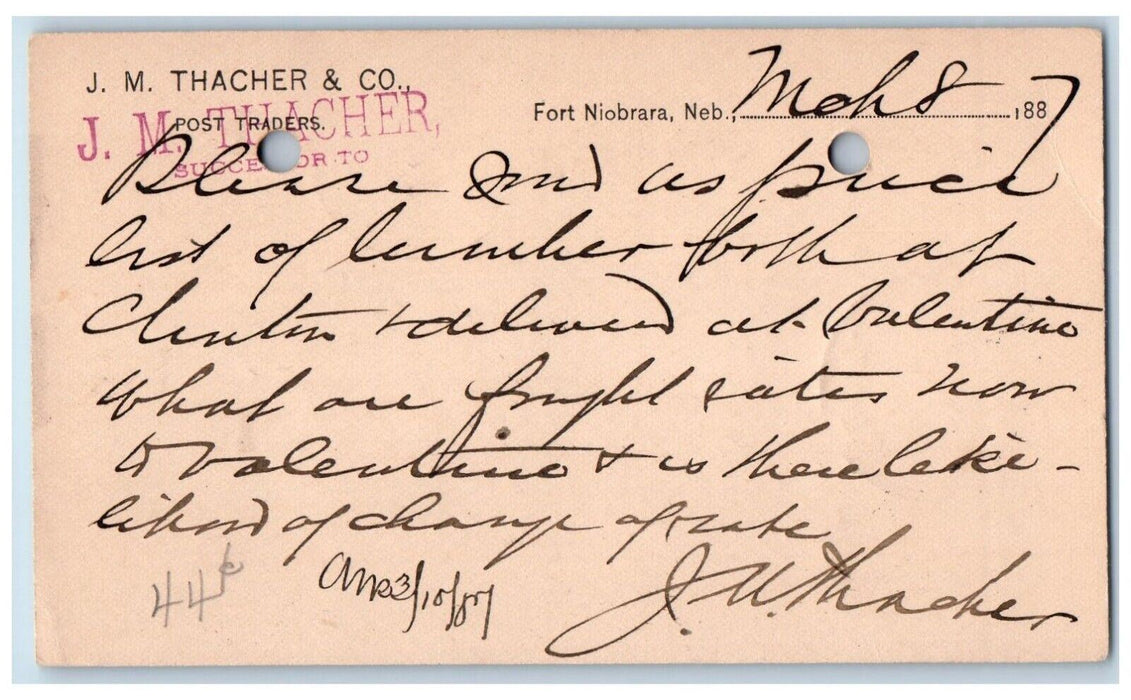 J. M. THACHER & CO.,
J. M. THACHER,
POST TRADERS.
SUCCESSOR TO
Fort Niobrara, Neb., Mch 8 1887
Please send us price
list of lumber both at
Clinton & delivered at Valentine
What are freight rates now
to Valentine & is there like-
lihood of change of rate
J. M. Thacher
44¢
Ans 3/10/87